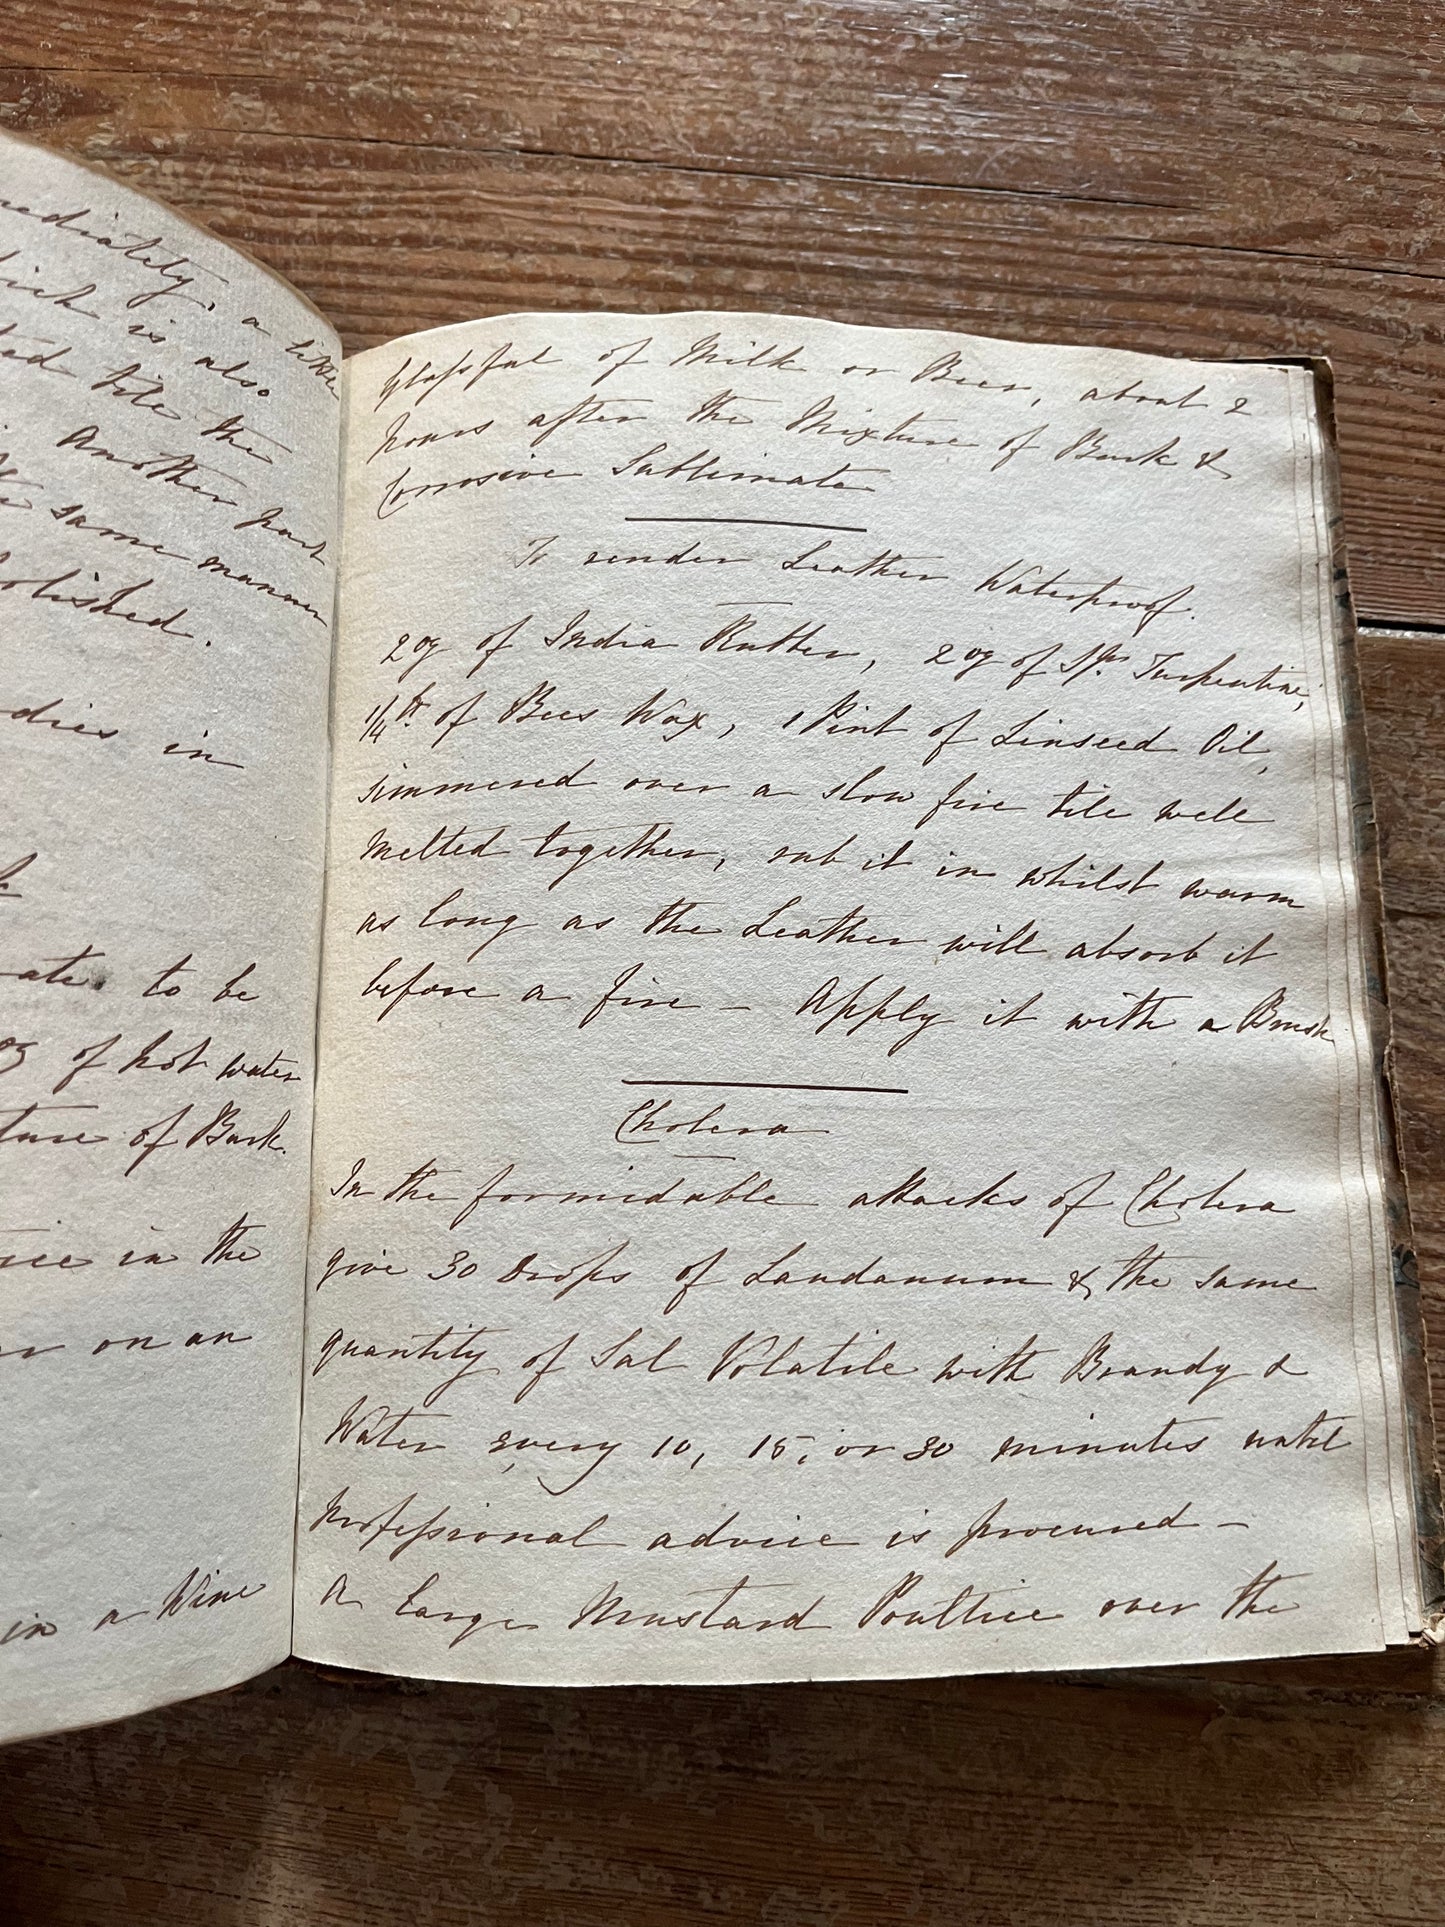 mediately, a like
which is also
ded tile the
Another part
same manner
polished.
dies in
rate. to be
oz of hot water
ture of Bark.
ice in the
on an
in a Wine
Glassful of Milk or Beer, about 2
hours after the Mixture of Bark &
Corrosive Sublimate
To render Leather Waterproof.
2 oz of India Rubber, 2 oz of Sps. Turpentine,
1/4 lb. of Bees Wax, 1 Pint of Linseed Oil,
simmered over a slow fire tile well
melted together, rub it in whilst warm
as long as the Leather will absorb it
before a fire — Apply it with a Brush
Cholera
In the formidable attacks of Cholera
give 30 Drops of Laudanum & the same
quantity of Sal Volatile with Brandy &
Water every 10, 15, or 30 minutes until
professional advice is procured —
A large Mustard Poultice over the